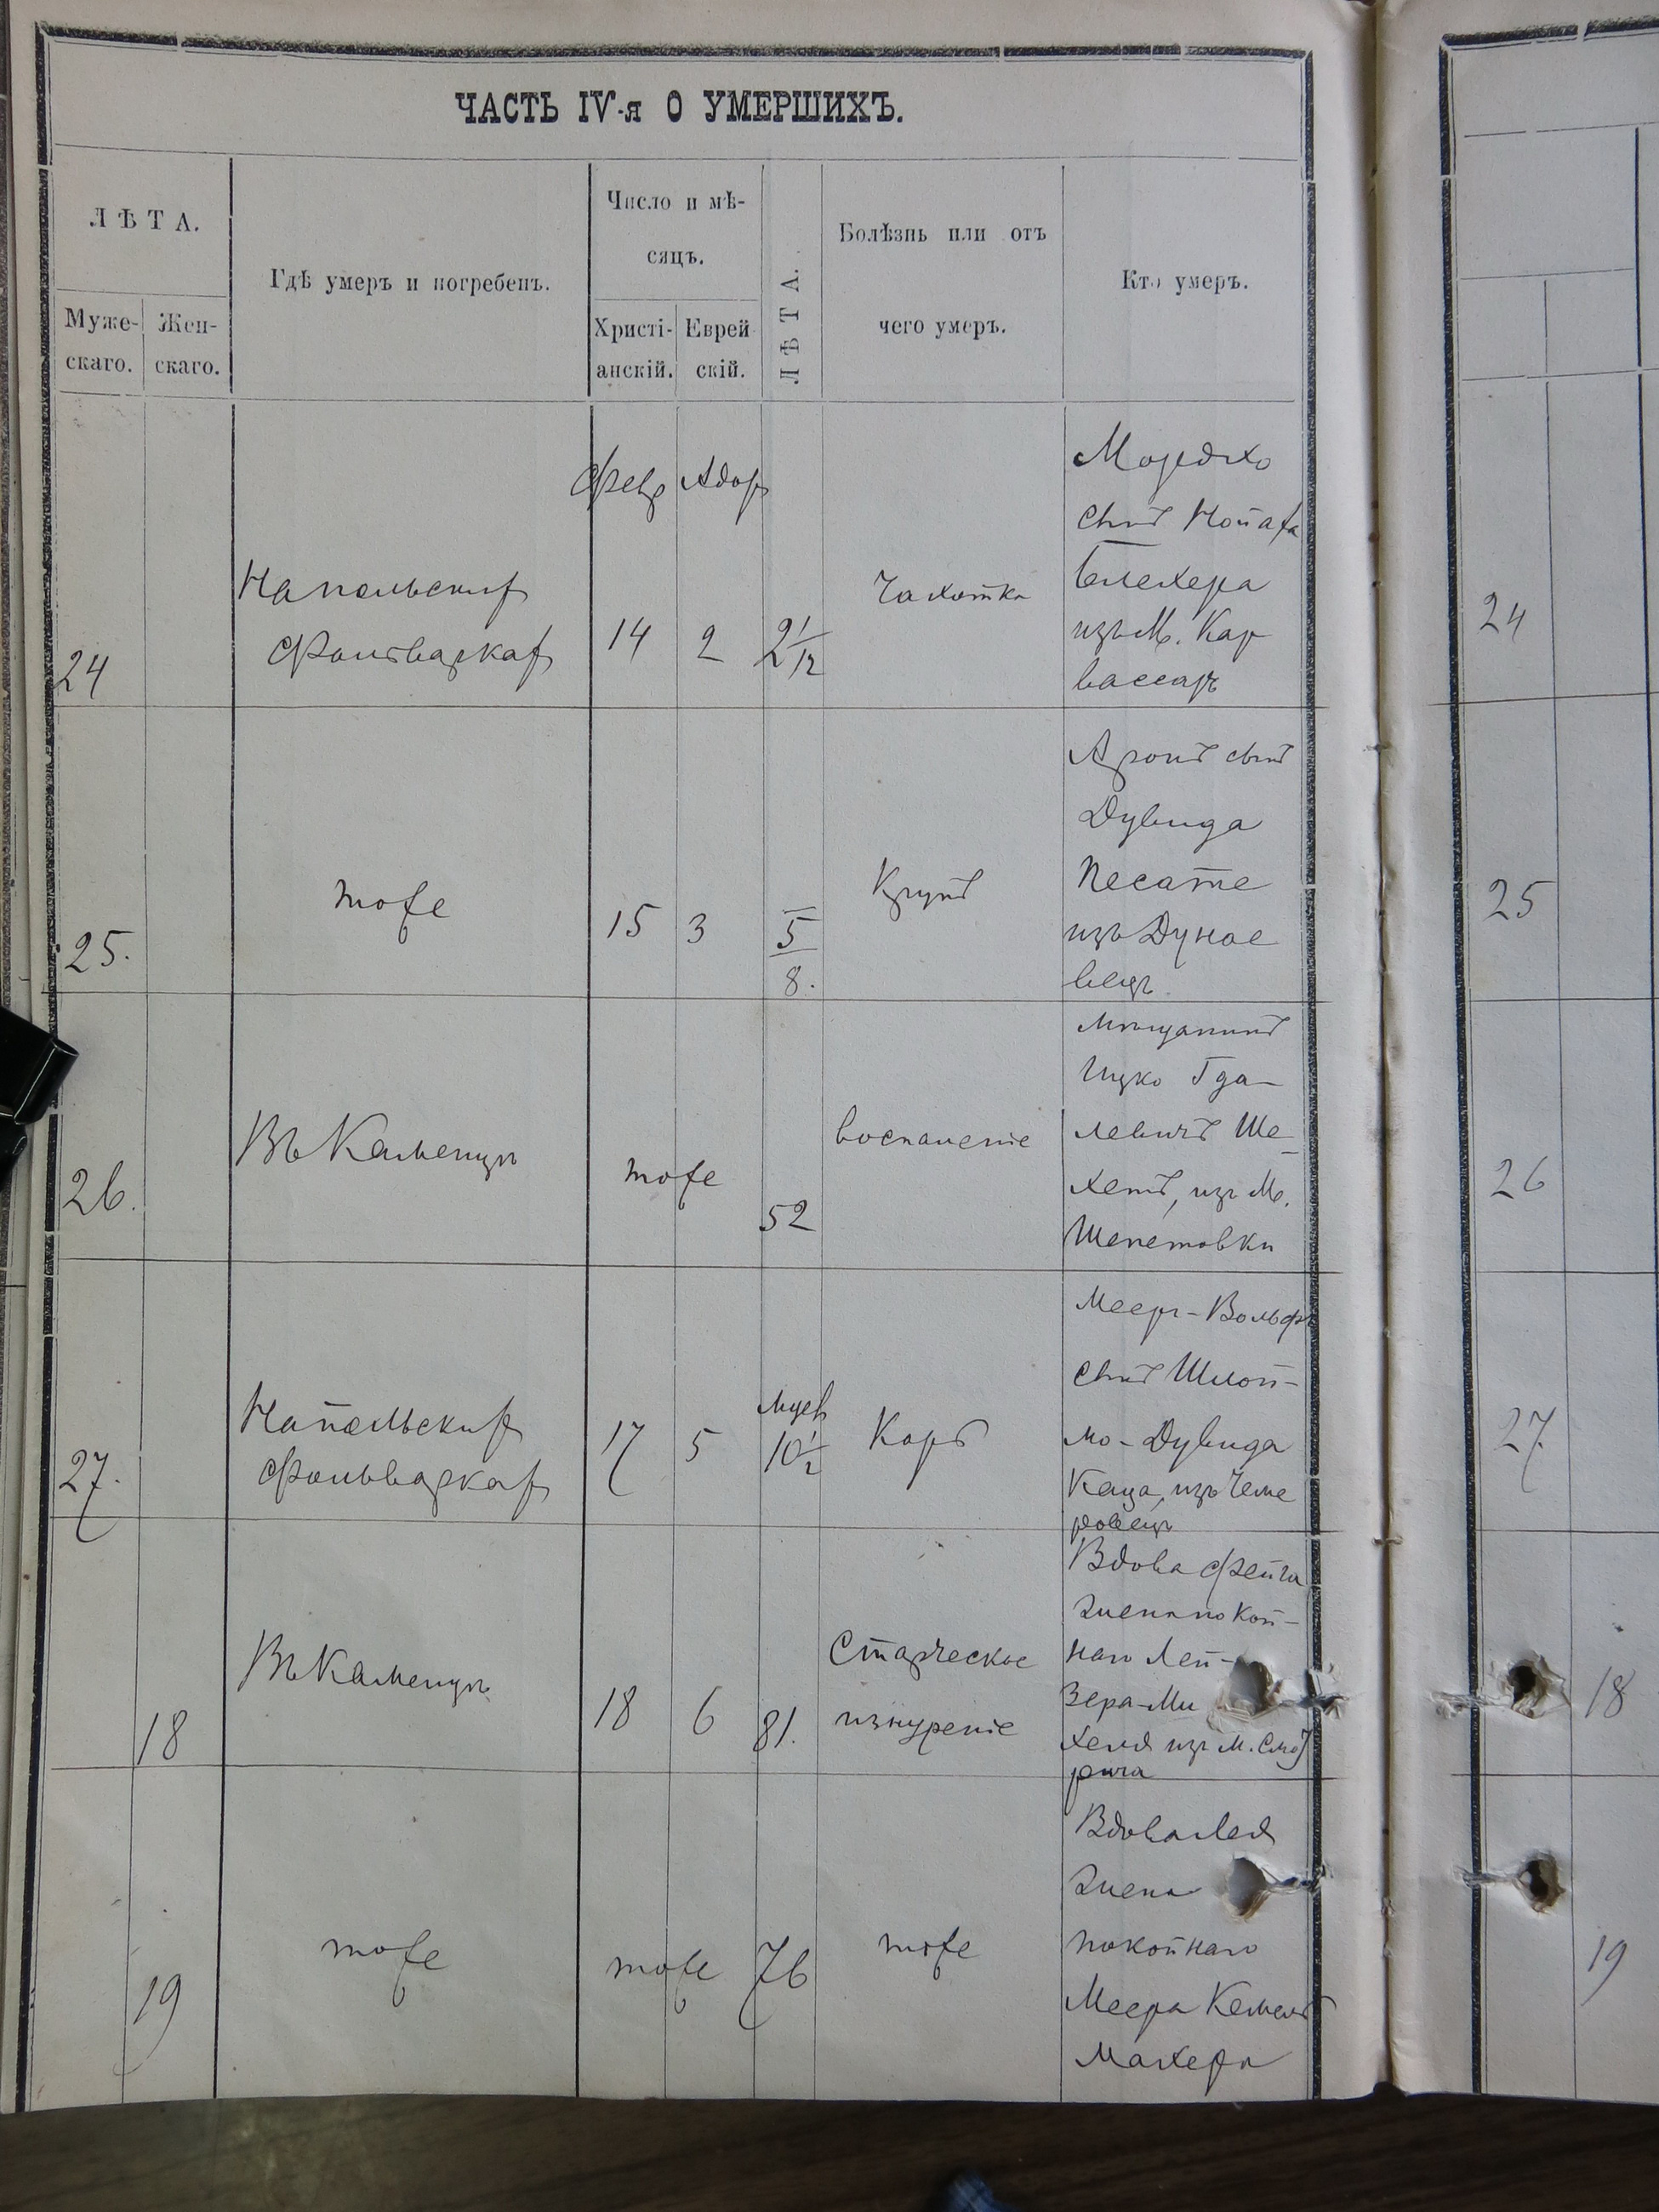 ЧАСТЬ IV-я О УМЕРШИХЪ.
ЛѢТА.
Муже-
скаго.
Жен-
скаго.
Гдѣ умеръ и погребенъ.
Число и мѣ-
сяцъ.
Христі-
анскій.
Еврей
скій.
ЛѢТА.
Болѣзнь или отъ
чего умеръ.
Кто умеръ.
24
На польскихъ
фольваркахъ
Февр Адор
14 2
2 1/12
Чахотка
Мордхо
сынъ Нойаха
Блехера
изъ М. Кар
вассаръ
24
25.
тоже
15 3
5
8.
Крупъ
Аронъ сынъ
Дувида
Песате
изъ Дунае
вецъ
25
26.
Въ Каменцѣ
тоже
52
воспаленіе
мѣщанинъ
Ицко Гда-
левичъ Ше-
хетъ, изъ М.
Шепетовки
26
27.
На польскихъ
фольваркахъ
17 5
мцев
10 1/2
Корь
Мееръ-Вольфъ
сынъ Шлой-
мо-Дувида
Каца, изъ Чеме
ровецъ
27.
18
Въ Каменцѣ
18 6 81.
Старческое
изнуреніе
Вдова Фейга
жена покой-
наго Лей-
зера-Ми
хеля изъ М. Смо
рича
18
19
тоже
тоже
76
тоже
Вдова Лея
жена
покойнаго
Меера Кемель
махера
19